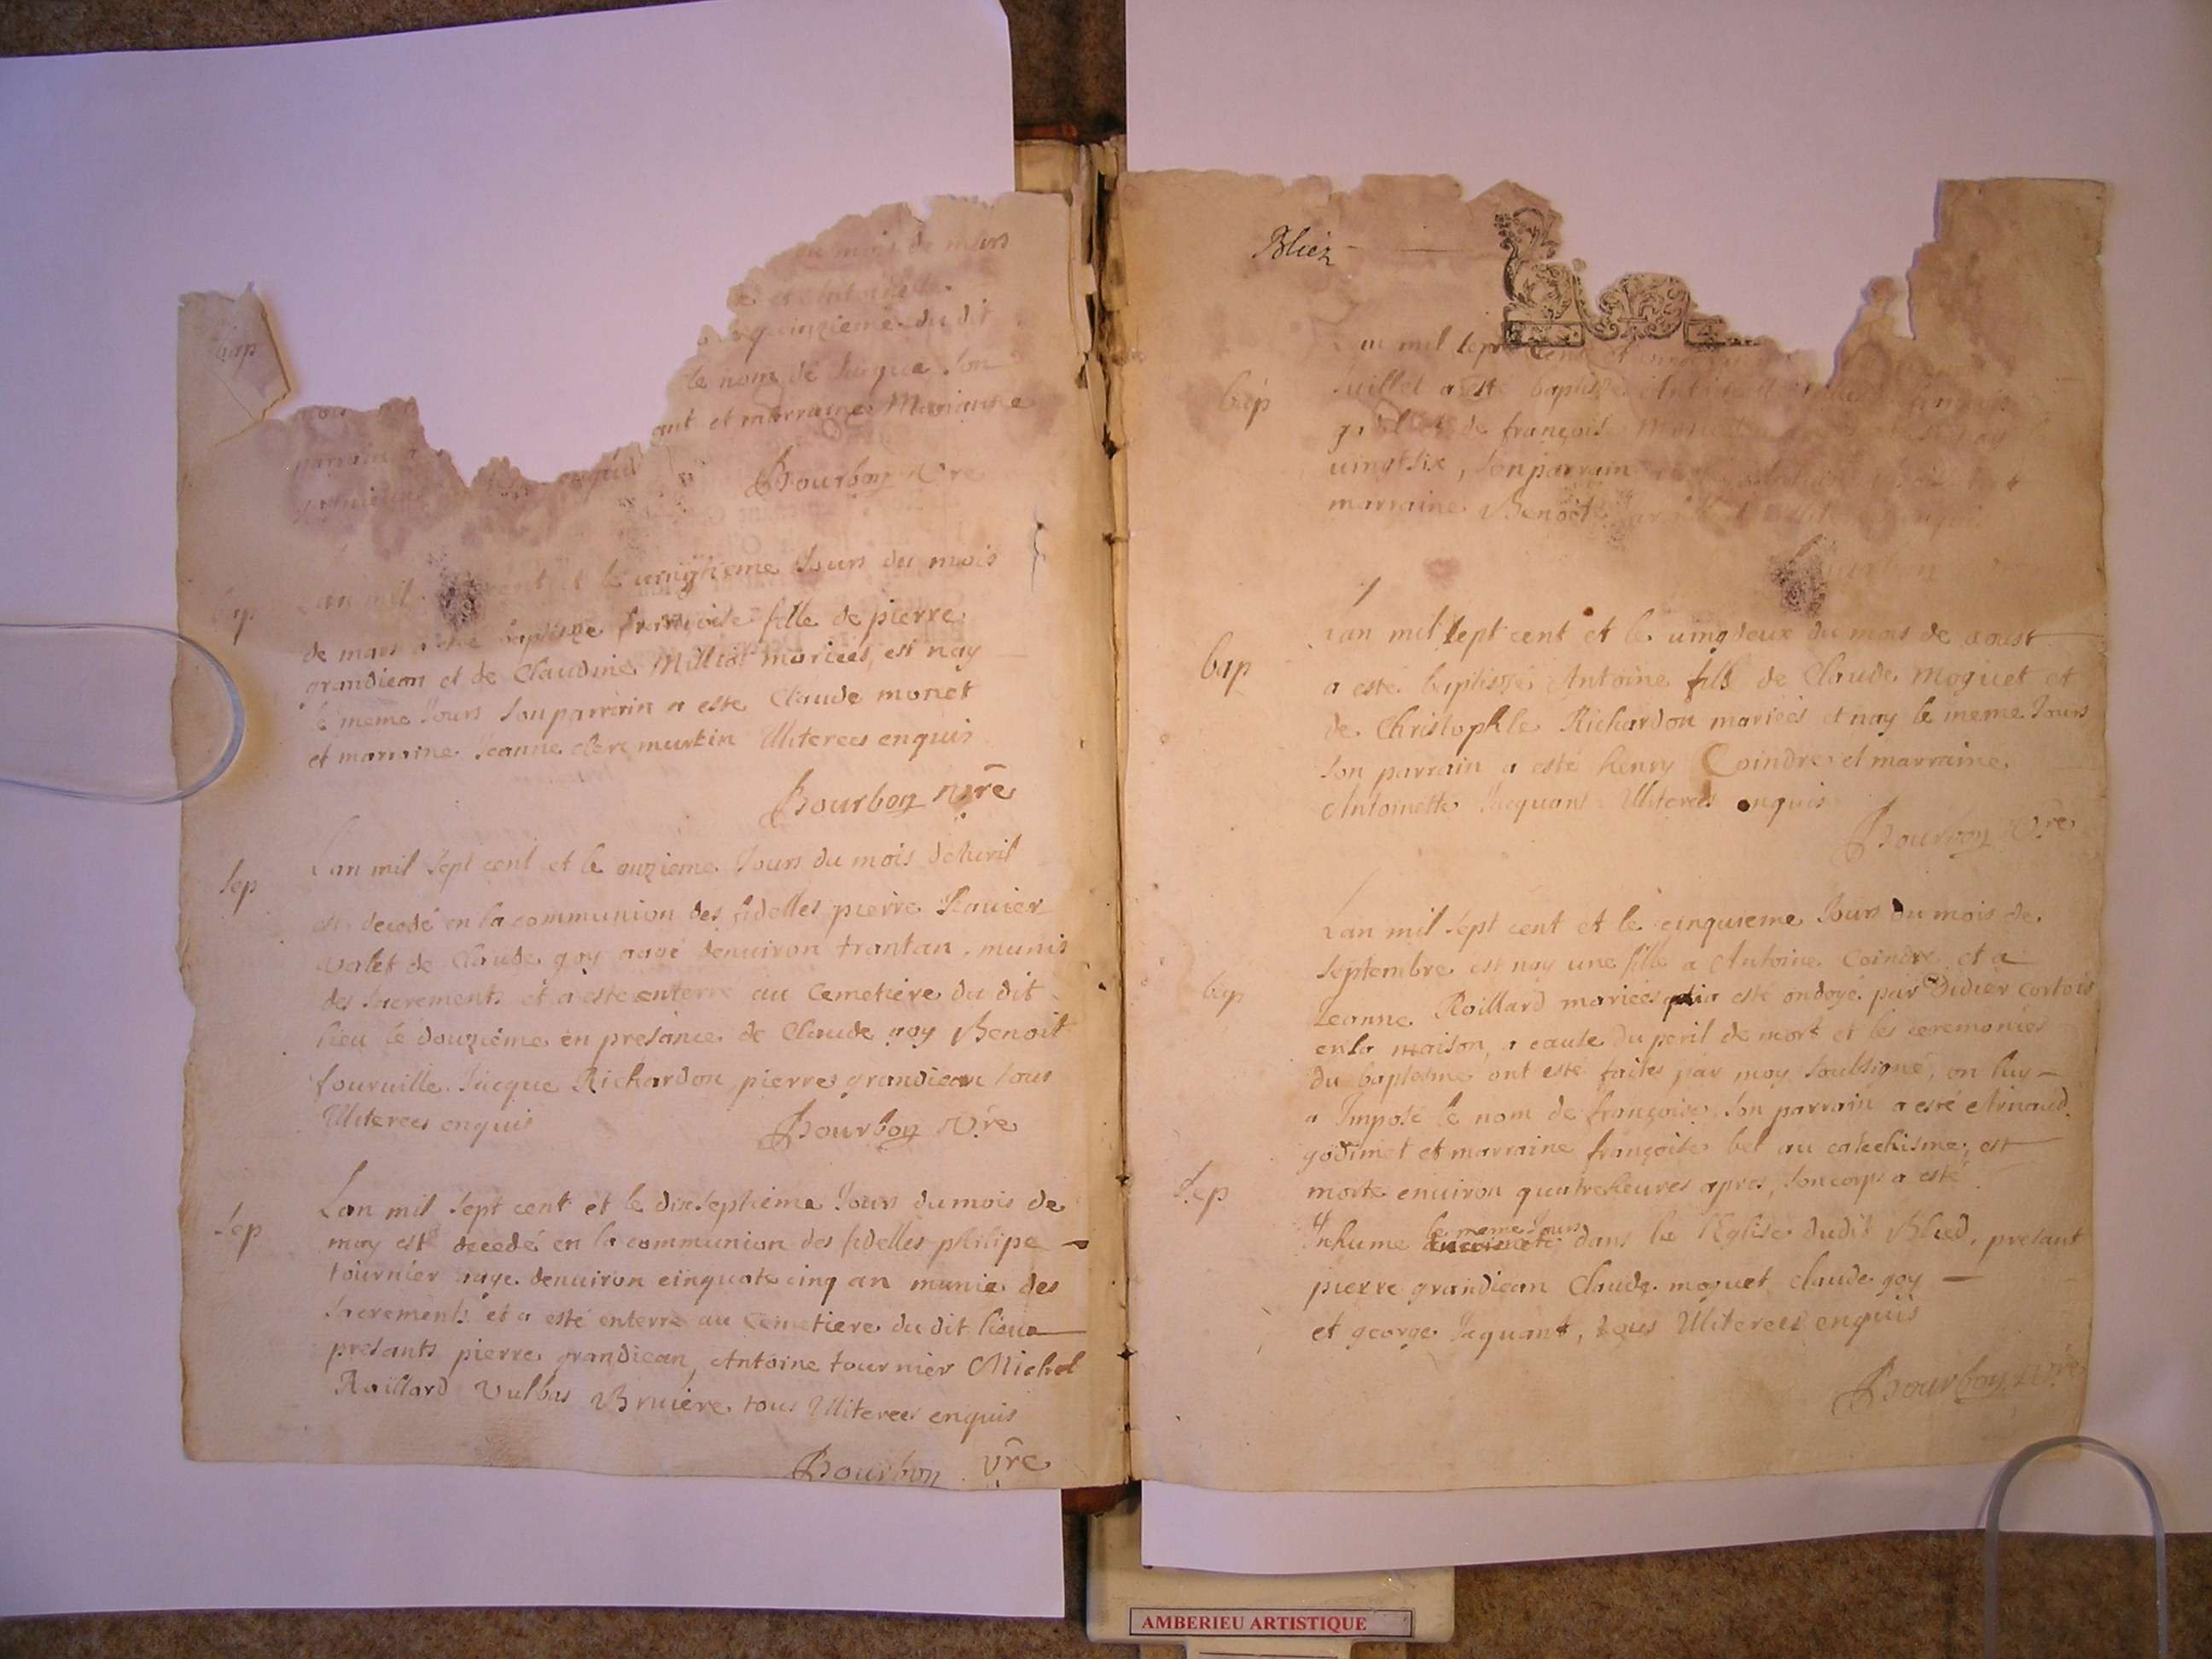 mois de mars
et Antoinette
quinzieme du dit
bap
le nom de Jacque Son
ant et marraine Marianne
parrain a
enquis
Bourbon vre
bap
Lan mil cent et le uingtieme Jours du mois
de mars a este baptisée francoise fille de pierre
grandiean et de Claudine Milliot mariees, est nay
le meme Jours Son parrain a este Claude monet
et marraine Jeanne clerc murtin Illiterees enquis
Bourbon vre
Sep
Lan mil Sept cent et le onzieme Jours du mois d'Avril
est decedé en la communion des fidelles pierre Rauier
valet de Claude goy aagé denuiron trantan, munis
des Sacrements et a este enterre au Cemetiere du dit
lieu le douzième en presance de Claude goy Benoit
fouruille Jacque Richardon pierre grandiean tous
Illiterees enquis
Bourbon vre
Sep
Lan mil Sept cent et le dixseptieme Jours du mois de
may est decedé en la communion des fidelles philipe
tournier aage denuiron cinquate cinq an munie des
Sacrements et a esté enterre au Cemetiere du dit lieu
presants pierre grandiean, Antoine tournier Michel
Raillard Vulbas Bruiere tous Illiterees enquis
Bourbon vre
Bliez
bap
Lan mil Sept cent et
Juillet a esté baptisé
de françoise
uingtsix, Son parrain
marraine Benoite
Bourbon
bap
Lan mil Sept cent et le uingdeux du mois de aoust
a esté baptisée Antoine fils de Claude Moguet et
de Christophle Richardon mariées et nay le meme Jours
Son parrain a esté henry Coindre et marraine
Antoinette Jacquant Illiterees enquis
Bourbon vre
bap
Lan mil Sept cent et le cinquieme Jours du mois de
Septembre est nay une fille a Antoine Coindre et a
Jeanne Raillard mariees esté ondoyé par Didier cortois
en la maison, a cause du peril de mort et les ceremonies
du baptesme ont esté faites par moy Soubsigné, on luy
a Imposé le nom de françoise, Son parrain a esté Arnaud
godimet et marraine françoise bel au catechisme, est
Sep
morte enuiron quatreheures apres, Son corps a esté
le meme Jours
Inhume dans la l'Eglise dudit Blied, presant
pierre grandiean Claude moguet claude goy
et george Jaquant, tous Illiterees enquis
Bourbon vre
AMBERIEU ARTISTIQUE